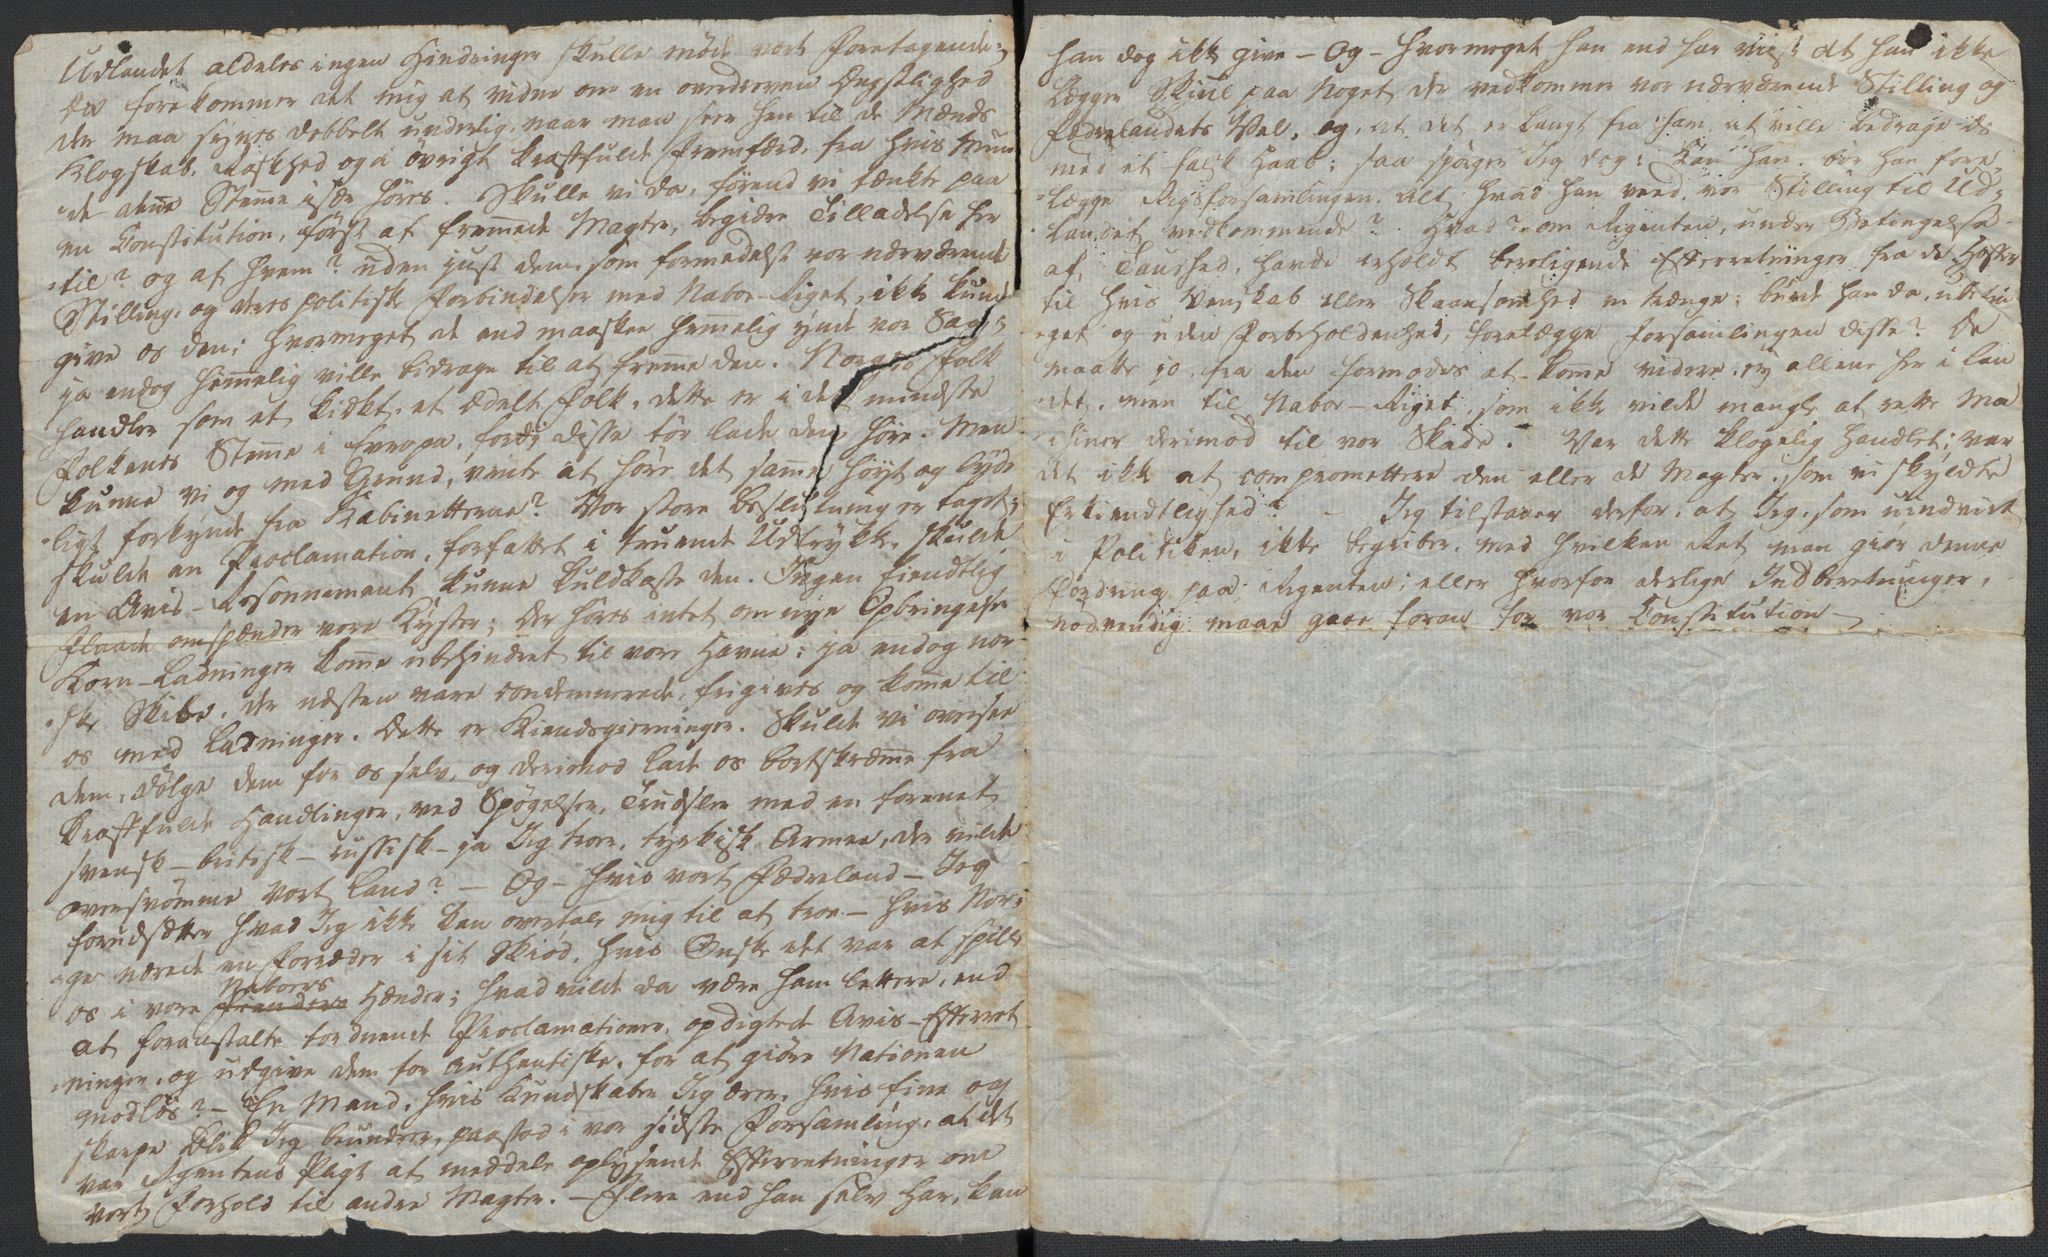 Udlandet aldeles ingen Hindringer skulle møde vort Foretagende;
det forekommer det mig at vidne om en overdreven Ængstelighed
der maa synes dobbelt underlig, naar man seer hen til de Mænds
Klogskab, Raskhed og i øvrigt kraftfulde Fremfærd, fra hvis Mun
de denne Stemme især høres. Skulle vi da, førend vi tænkte paa
en Constitution, først af fremmede Magter, begiære Tilladelse her
til? og af hvem? uden just dem, som formedelst vor nærværende
Stilling, og deres politiske Forbindelser med Nabo-Riget, ikke kunde
give os den; hvormeget de end maaskee hemmelig ynde vor Sag;
ja endog hemmelig ville bidrage til at fremme den. Norges Folk
handler som et kiækt, et ædelt Folk, dette er i det mindste
Folkenes Stemme i Evropa, fordi disse tør lade den høre. Men
kunne vi og med Grund, vente at høre det samme høyt og tyde
ligt forkyndt fra Kabinetterne? Vor store Beslutning er taget;
skulde en Proclamation, forfattet i truende Udtrykk, skulde
en Avis-Resonnement kunne kuldkaste den. Ingen fiendtlig
Flaade omspænder vore Kyster; der høres intet om nye Opbringelser
Korn-Ladninger komme uhindret til vore Havne; ja endog nor
ske Skibe, der næsten vare condemnerede, frigives og komme til
os med Ladninger. Dette er Kiendsgierninger. Skulde vi oversee
dem, dølge dem for os selv, og derimod lade os bortskræmme fra
kraftfulde Handlinger, ved Spøgelser, Trudsler med en forenet
svensk-britisk-russisk- ja Jeg troer, tyrkisk Armee, der vilde
oversvømme vort Land? - Og - hvis vort Fædreland - Jeg
forudsætter hvad Jeg ikke kan overtale mig til at troe - hvis Nor
ge nærede en Forræder i sit Skiød, hvis Ønske det var at spille
os i vore Naboers Hænder; hvad vilde da være ham lettere, end
at foranstalte tordnende Proclamationer, opdigtede Avis-Efterret
ninger, og udgive dem for authentiske, for at giøre Nationen
modløs? - En Mand, hvis Kundskaber Jeg ærer, hvis fine og
skarpe Blik Jeg beundrer, paastod i vor sidste Forsamling, at det
var Regentens Pligt at meddele oplysende Efterretninger om
vort Forhold til andre Magter. - Flere end han selv har, kan
han dog ikke give - Og - hvormeget han end har viist at han ikke
Lægger Skiul paa Noget der vedkommer vor nærværende Stilling og
Fædrelandets Vel, og, at det er langt fra ham, at ville bedrage os
med et falsk Haab; saa spørger Jeg dog: kan han, bør han fore
lægge Rigsforsamlingen, alt hvad han veed, vor Stilling til Ud
landet vedkommende? Hvad? om Regenten, under Betingelse
af Taushed, havde erholdt beroligende Efterretninger fra de Hoffer
til hvis Venskab eller Skaansomhed vi trænge; burde han da, ubetin
get og uden Forbeholdenhed, forelægge Forsamlingen disse? De
maatte jo, fra den formodes at komme videre, ey allene her i Lan
det, men til Nabo-Riget, som ikke vilde mangle at rette Ma
chiner derimod til vor Skade. Var dette klogelig handlet; var
det ikke at compromettere den eller de Magter, som vi skyldte
Erkiendtlighed? - Jeg tilstaaer derfor, at Jeg, som uindviet
i Politiken, ikke begriber, med hvilken Ret man giør denne
Fordring paa Regenten; eller hvorfor deslige Indberetninger,
nødvendig maae gaae foran for vor Constitution -